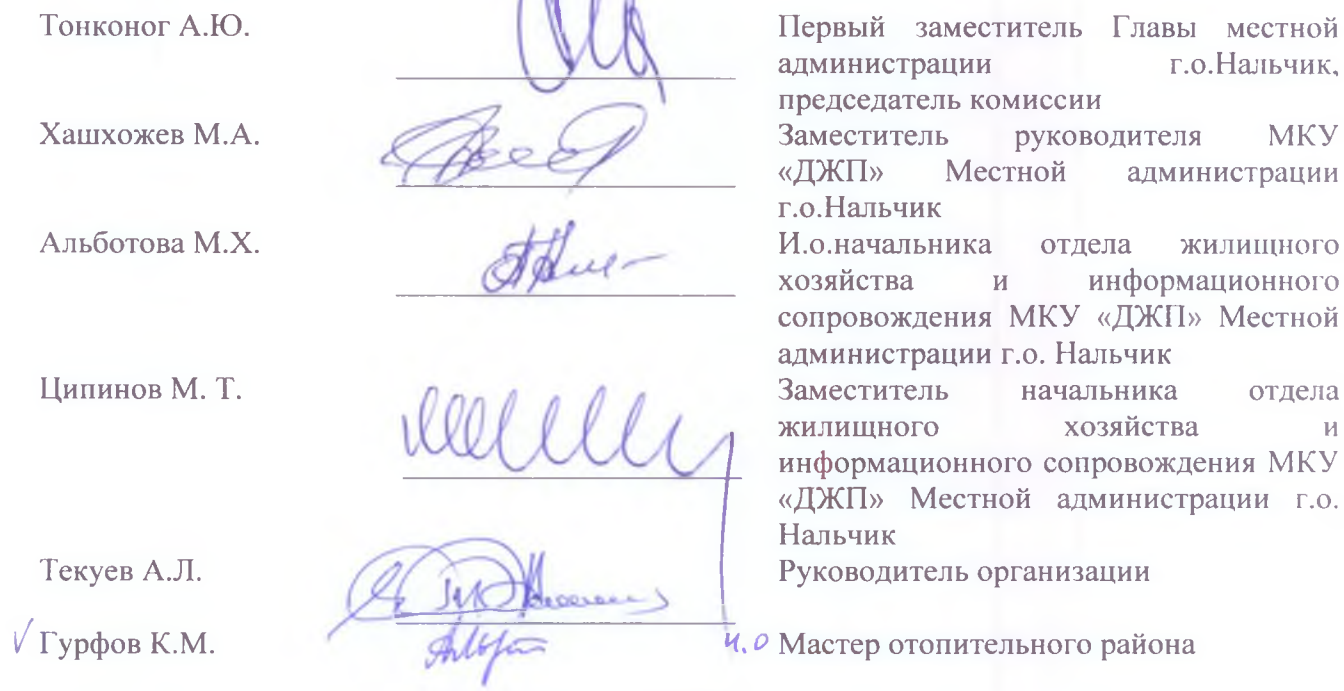 Тонконог А.Ю. Первый заместитель Главы местной
администрации г.о.Нальчик,
председатель комиссии
Хашхожев М.А. Заместитель руководителя МКУ
«ДЖП» Местной администрации
г.о.Нальчик
Альботова М.Х. И.о.начальника отдела жилищного
хозяйства и информационного
сопровождения МКУ «ДЖП» Местной
администрации г.о. Нальчик
Ципинов М. Т. Заместитель начальника отдела
жилищного хозяйства и
информационного сопровождения МКУ
«ДЖП» Местной администрации г.о.
Нальчик
Текуев А.Л. Руководитель организации
V Гурфов К.М. и.о Мастер отопительного района